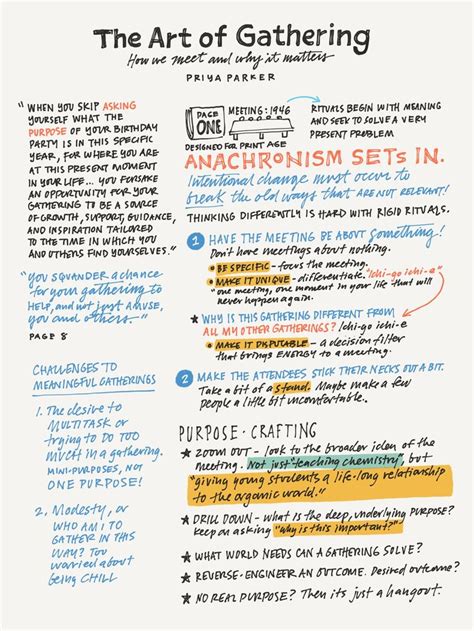 The Art of Gathering
How we meet and why it matters
PRIYA PARKER
"WHEN YOU SKIP ASKING
YOURSELF WHAT THE
PURPOSE OF YOUR BIRTHDAY
PARTY IS IN THIS SPECIFIC
YEAR, FOR WHERE YOU ARE
AT THIS PRESENT MOMENT
IN YOUR LIFE... YOU FORSAKE
AN OPPORTUNITY FOR YOUR
GATHERING TO BE A SOURCE
OF GROWTH, SUPPORT, GUIDANCE,
AND INSPIRATION TAILORED
TO THE TIME IN WHICH YOU
AND OTHERS FIND YOURSELVES."
"YOU SQUANDER A chance
for your gathering to
HELP, and not just AMUSE,
you and others."
PAGE 8
CHALLENGES TO
MEANINGFUL GATHERINGS
1. The desire to
MULTITASK or
trying to DO TOO
much in a gathering.
MINI-PURPOSES, NOT
ONE PURPOSE!
2. Modesty, or
WHO AM I TO
GATHER IN THIS
WAY? Too
worried about
being CHILL
PAGE
ONE
MEETING: 1946
DESIGNED FOR PRINT AGE
RITUALS BEGIN WITH MEANING
AND SEEK TO SOLVE A VERY
PRESENT PROBLEM
ANACHRONISM SETS IN.
Intentional change must occur to
break the old ways that ARE NOT RELEVANT!
THINKING DIFFERENTLY IS HARD WITH RIGID RITUALS.
1 HAVE THE MEETING BE ABOUT something!
Don't have meetings about nothing.
• BE SPECIFIC - focus the meeting.
• MAKE IT UNIQUE - differentiate. "Ichi-go ichi-e"
"one meeting, one moment in your life that will
never happen again.
★ WHY IS THIS GATHERING DIFFERENT FROM
ALL MY OTHER GATHERINGS? Ichi-go ichi-e
• MAKE IT DISPUTABLE - a decision filter
that brings ENERGY to a meeting.
2 MAKE THE ATTENDEES STICK THEIR NECKS OUT A BIT.
Take a bit of a stand. Maybe make a few
people a little bit uncomfortable.
PURPOSE • CRAFTING
★ ZOOM OUT - look to the broader idea of the
meeting. Not just "teaching chemistry", but
"giving young students a life-long relationship
to the organic world."
★ DRILL DOWN - what is the deep, underlying purpose?
keep on asking "Why is this important?"
★ WHAT WORLD NEEDS CAN A GATHERING SOLVE?
★ REVERSE-ENGINEER AN OUTCOME. Desired outcome?
★ NO REAL PURPOSE? Then its just a hangout.